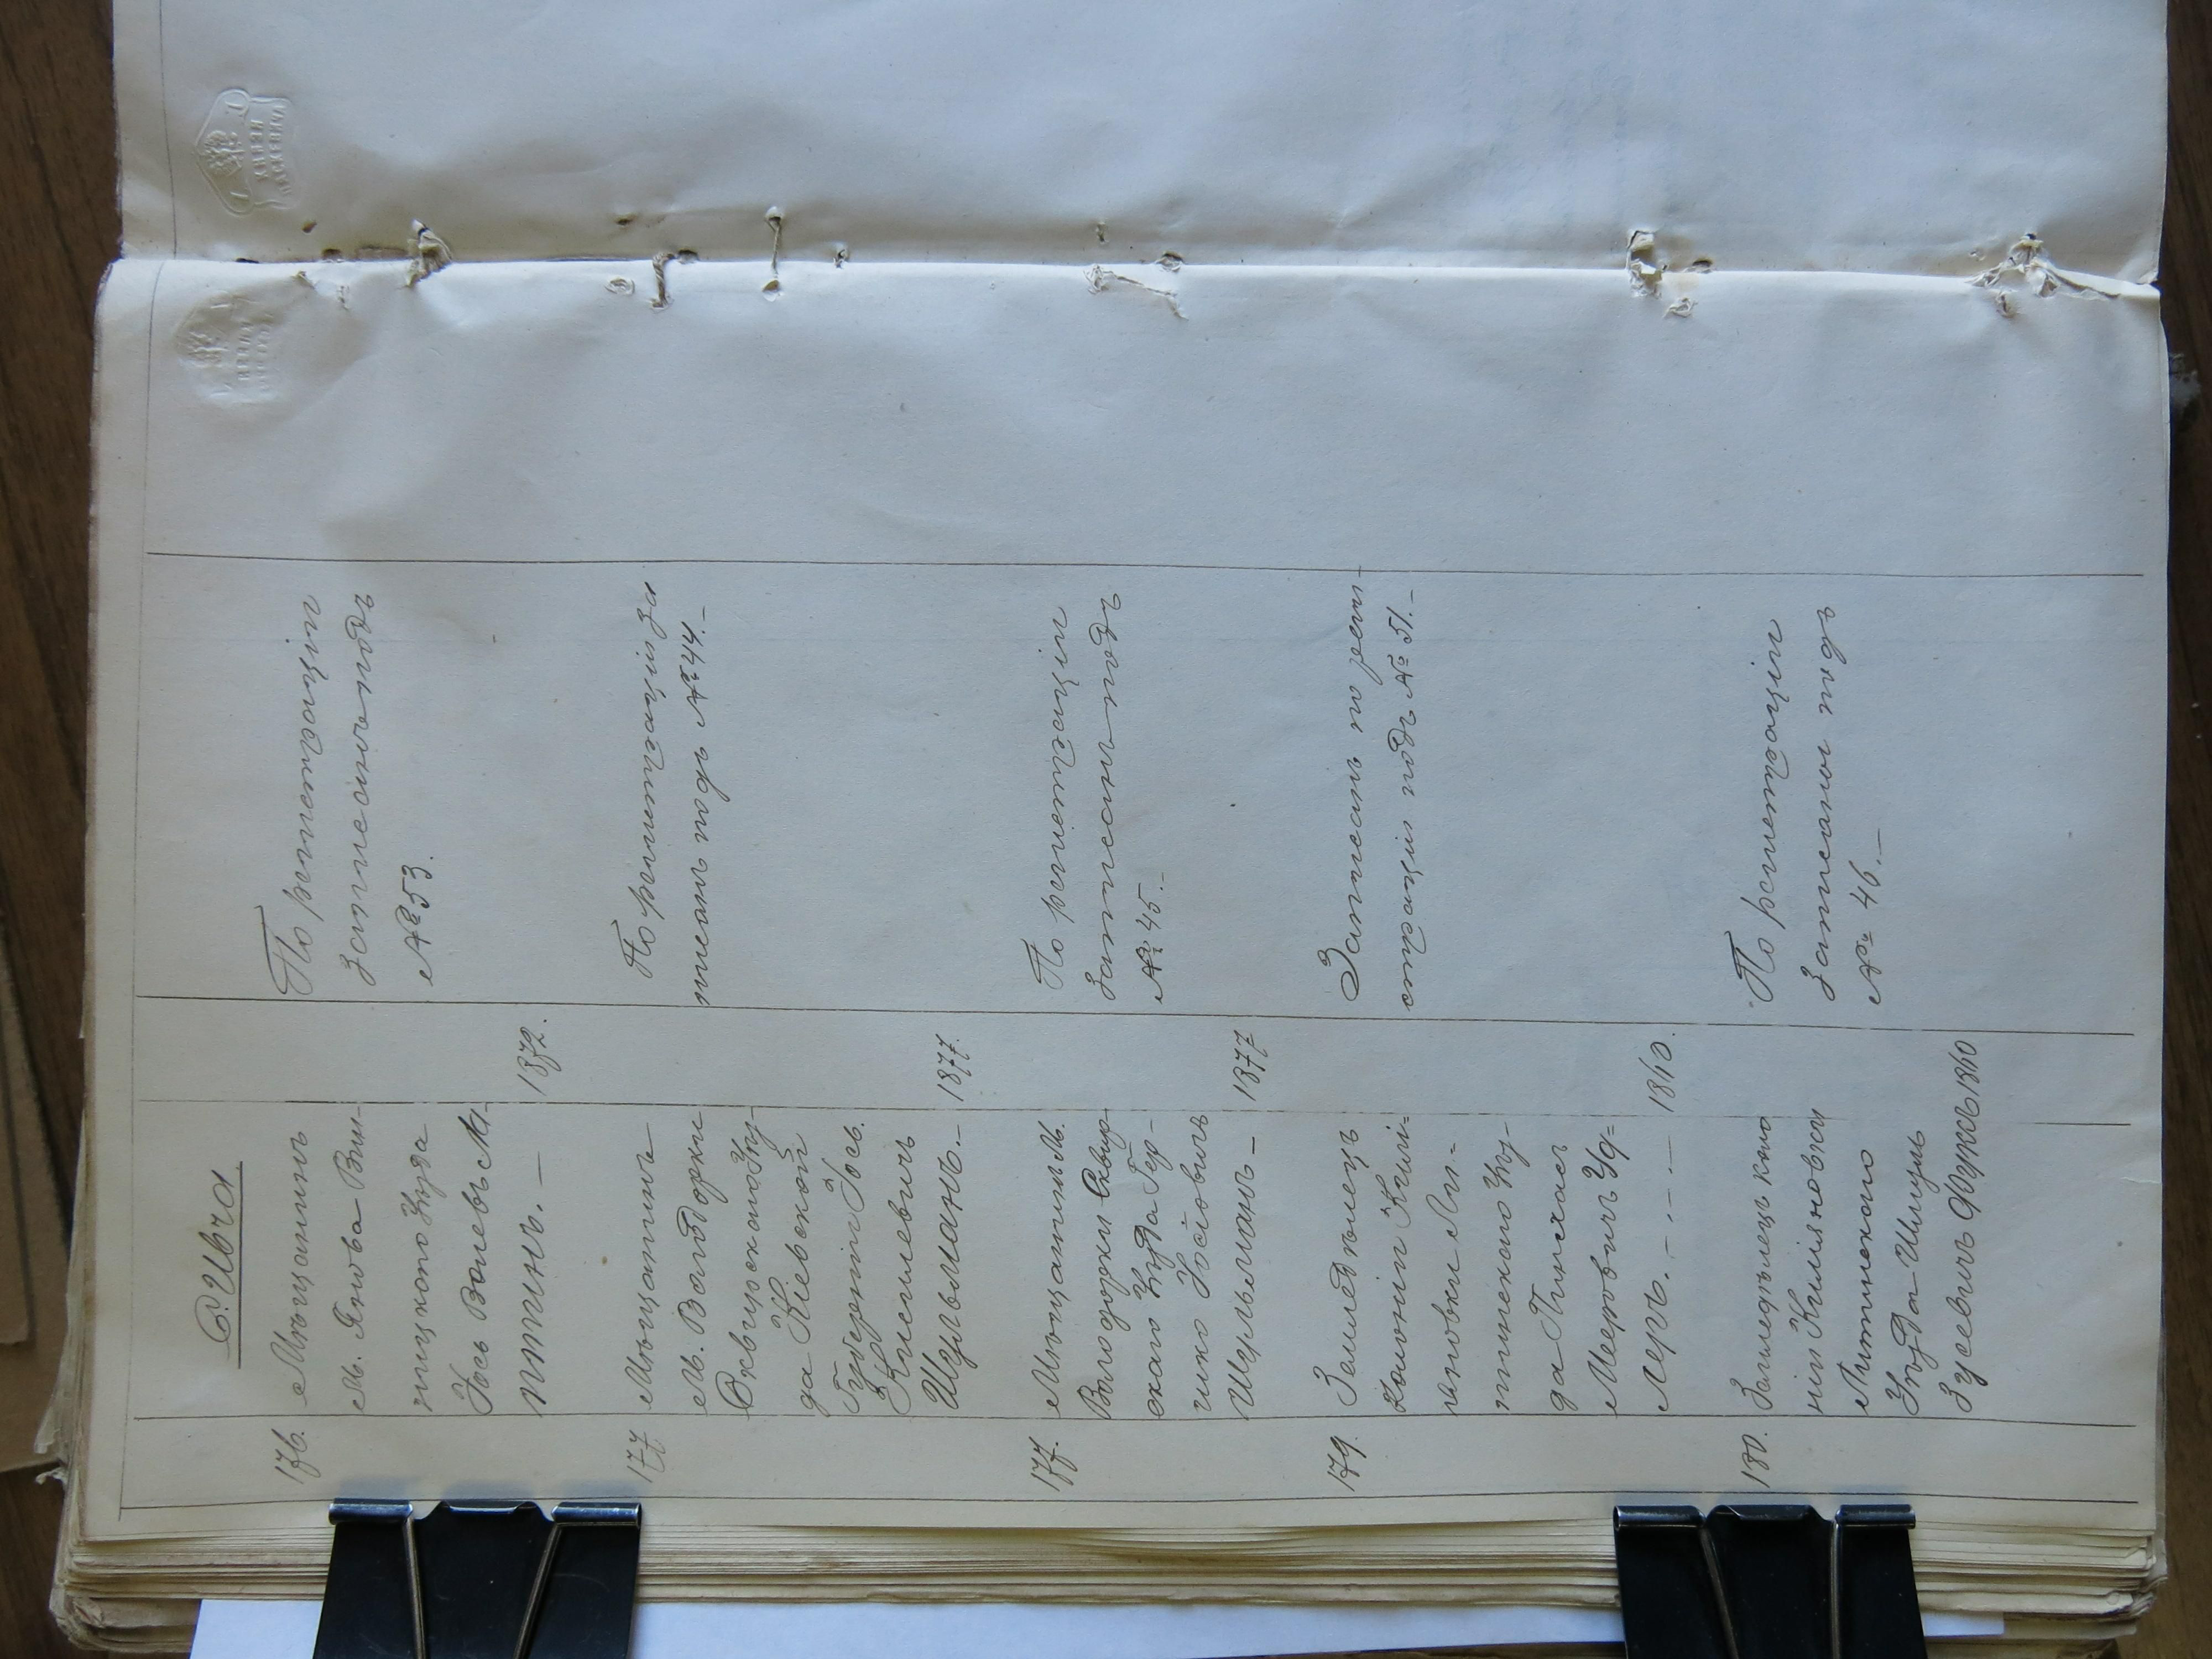 С. Ивча.
176.
Мѣщанинъ
м. Янова Вин-
ницкаго Уѣзда
Іось Волевъ М.
1872.
По регистраціи
записанъ подъ
№ 53.
177
Мѣщанинъ
м. Володорки
Сквирскаго Уѣз-
да Кіевской
Губерніи Іось
Киселевичъ
Шульманъ.—
1877.
По регистраціи за
писанъ подъ № 44.—
177.
Мѣщанинъ м.
Володорки Сквир-
скаго Уѣзда Гер-
шко Іосіовичъ
Шульманъ—
1877
По регистраціи
Записанъ подъ
№ 45.—
179.
Земледѣлецъ
Колоніи Кили-
яновки Ли-
тинскаго Уѣз-
да Пинхасъ
Мееровичъ Уд-
леръ.—.—.—
1840.
Записанъ по реги-
страціи подъ № 51.—
180.
Земледѣлецъ коло
ніи Килияновки
Литинскаго
Уѣзда Шмуль
Зусевичъ Фуксъ
1840
По регистраціи
Записанъ подъ
№ 46.—
КНЯЗЯ
ПАСКЕВИЧА